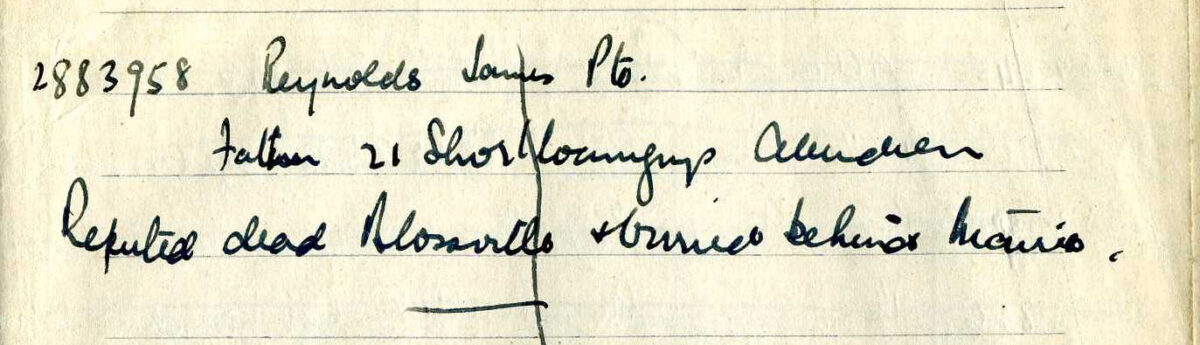 2883958 Reynolds James Pte.
Father 21 Short Loanings Aberdeen
Reputed dead Blosseville & buried behind Mairie.